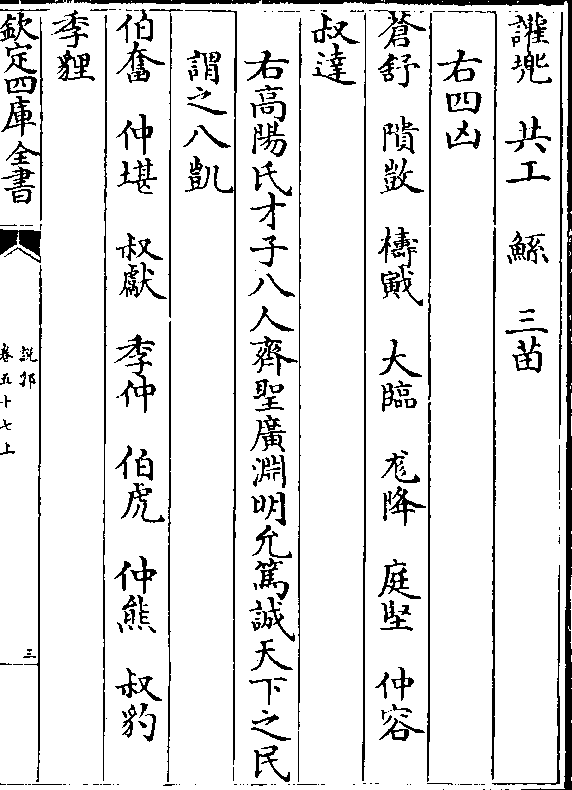 讙兠 共工 鯀 三苗
右四凶
蒼舒 隤敳 檮戭 大臨 尨降 庭堅 仲容
叔達
右高陽氏才子八人齊聖廣淵明允篤誠天下之民
謂之八凱
伯奮 仲堪 叔獻 季仲 伯虎 仲熊 叔豹
季貍
欽定四庫全書
說郛
卷五十七上
三